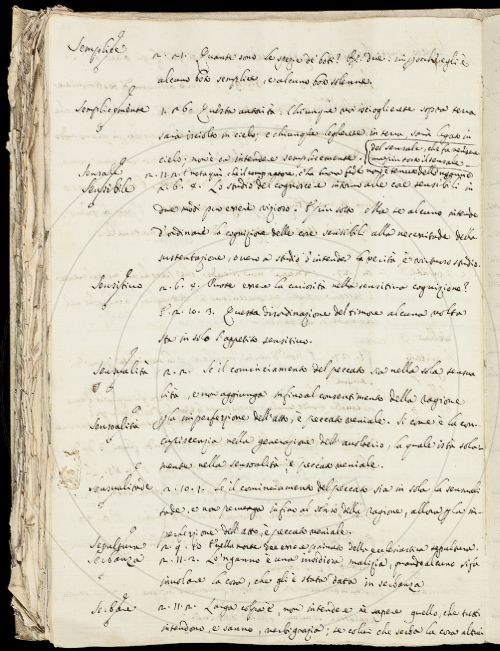 Semplice
n. 21. Quante sono le specie de boti? Rx. due. imperocché egli è
alcuno boto semplice, e alcuno boto solenne.
Semplicemente
1. n. 6. Questa autorità: Chiunque voi scioglierete sopra terra
sarà isciolto in cielo, e chiunque legherete in terra sarà legato in
cielo; non è da intendere semplicemente.
del sensale, che fa vendere
Sensale
n. 11. n.
Sensibile
n. 6. 8. Lo studio del cognoscere intorno alle cose sensibili in
due modi può essere vizioso. Ma se alcuno intende
d'ordinare la cognizione delle cose sensibili alla necessitude della
sustentazione, ovvero a studio d'intender la verità è virtuoso studio.
Sensitivo
n. 6. 8. Puote essere la curiosità nella sensitiva cognizione?
E n. 10. 3. Questa disordinazione del timore alcuna volta
sta in solo l'appetito sensitivo.
Sensualità
n. 2. Se il cominciamento del peccato sia nella sola sensua
lità, e non aggiunga infino al consentimento della ragione
p la imperfezione dell'atto, è peccato veniale. Si come è la con
Sensoalità
cupiscenzia nella generazione dell'aulterio, la quale ista sola
mente nella sensoalità è peccato veniale.
Sensualitade
n. 10. 1. Se il cominciamento del peccato sia in sola la sensuali
tade, e non pervenga infino al senso della ragione, allora p la im
perfezione dell'atto, è peccato veniale.
Sepultura
n. 9. 70 E nella morte dee essere privato della ecclesiastica seppultura.
Serbanza
n. 11. 2. L'inganno è una insidiosa malizia, quando alcuno si fa
involare la cosa, che gli è stata data in serbanza
Serbare
n. 11. n. Larga colpa è, non intendere e sapere quello, che tutti
intendono, e sanno, verbigrazia; se colui che serba la cosa altrui